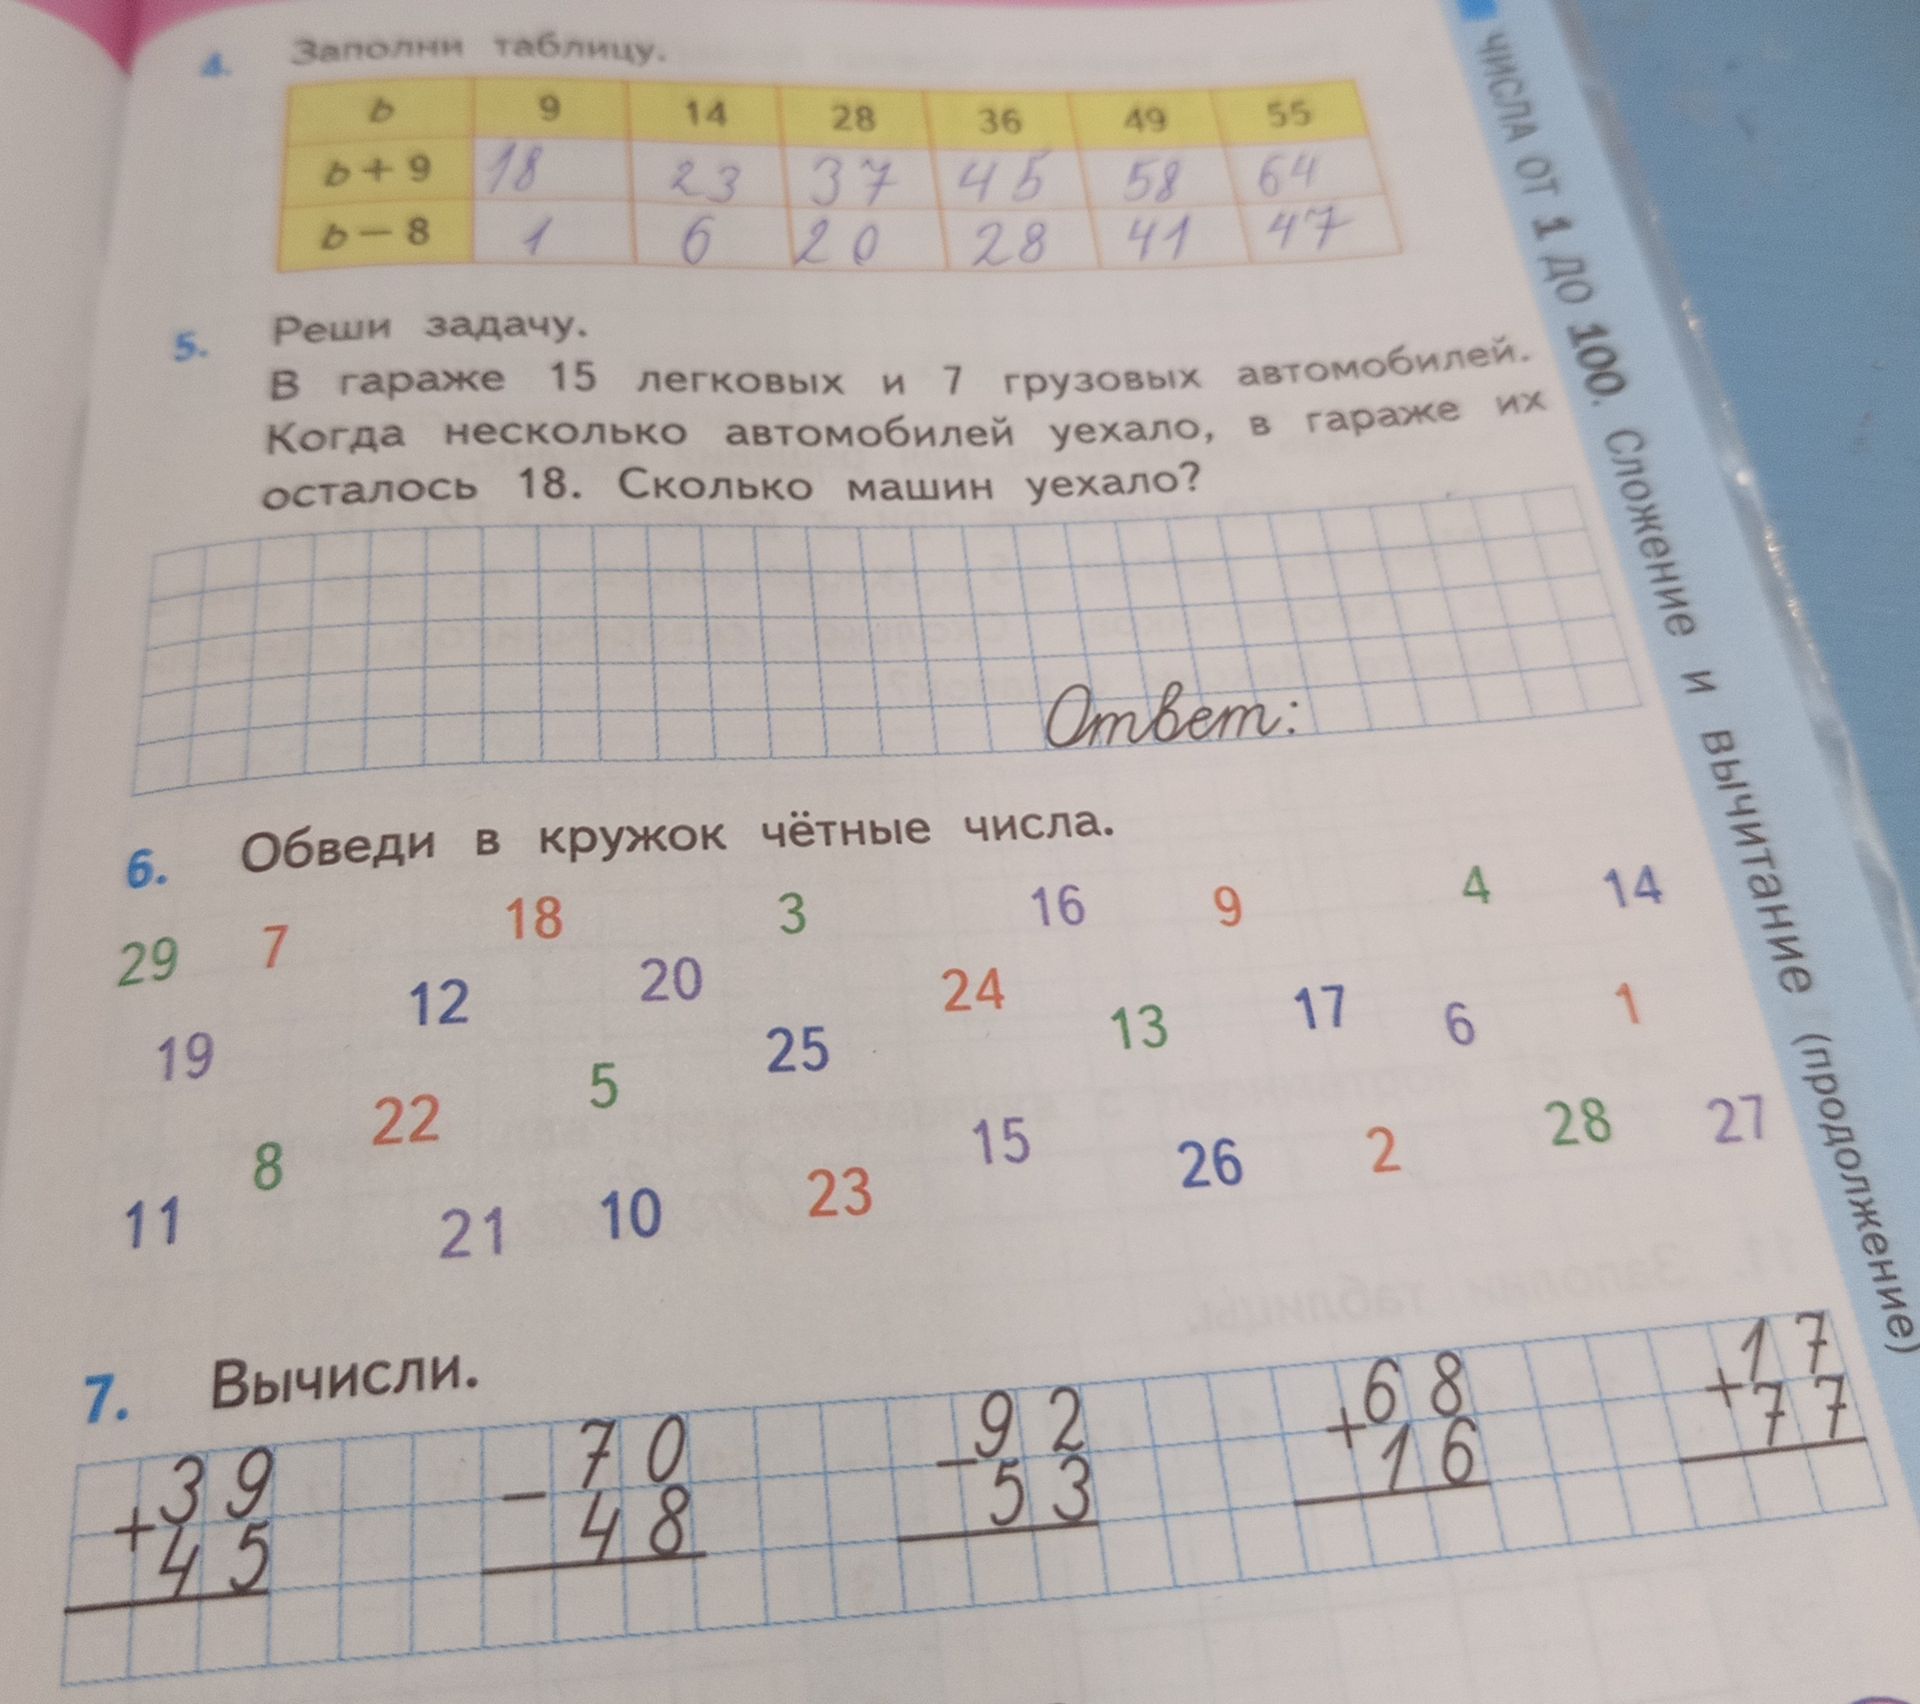 4. Заполни таблицу.
b 9 14 28 36 49 55
b + 9 18 23 37 45 58 64
b − 8 1 6 20 28 41 47
5. Реши задачу.
В гараже 15 легковых и 7 грузовых автомобилей.
Когда несколько автомобилей уехало, в гараже их
осталось 18. Сколько машин уехало?
Ответ:
6. Обведи в кружок чётные числа.
29 7 18 3 16 9 4 14
19 12 20 25 24 13 17 6 1
8 22 5 15 26 2 28 27
11 21 10 23
7. Вычисли.
+39 −70 −92 +68 +17
45 48 53 16 77
ЧИСЛА ОТ 1 ДО 100. Сложение и вычитание (продолжение)